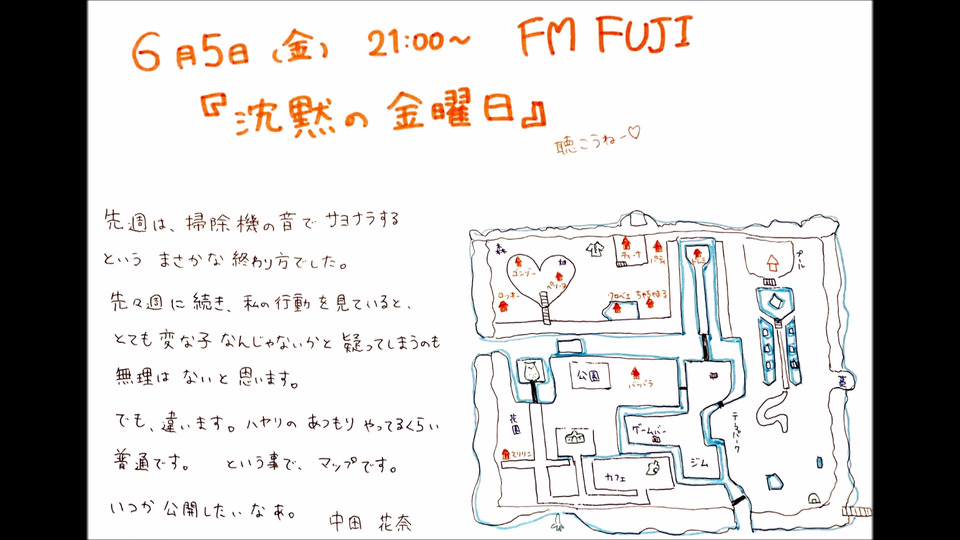 6月5日(金) 21:00～ FM FUJI
『沈黙の金曜日』
聴こうねー♡
先週は、掃除機の音でサヨナラする
というまさかな終わり方でした。
先々週に続き、私の行動を見ていると、
とても変な子なんじゃないかと疑ってしまうのも
無理はないと思います。
でも、違います。ハヤリのあつもりやってるくらい
普通です。 という事で、マップです。
いつか公開したいなぁ。 中田 花奈
森
畑
ゴンゾー
ペリーヌ
ロッキー
チーナ
パティ
クロベエ
ちゃちゃまる
プール
公園
バーバラ
花園
マリリン
ゲームバー
カフェ
ジム
テーマパーク
墓